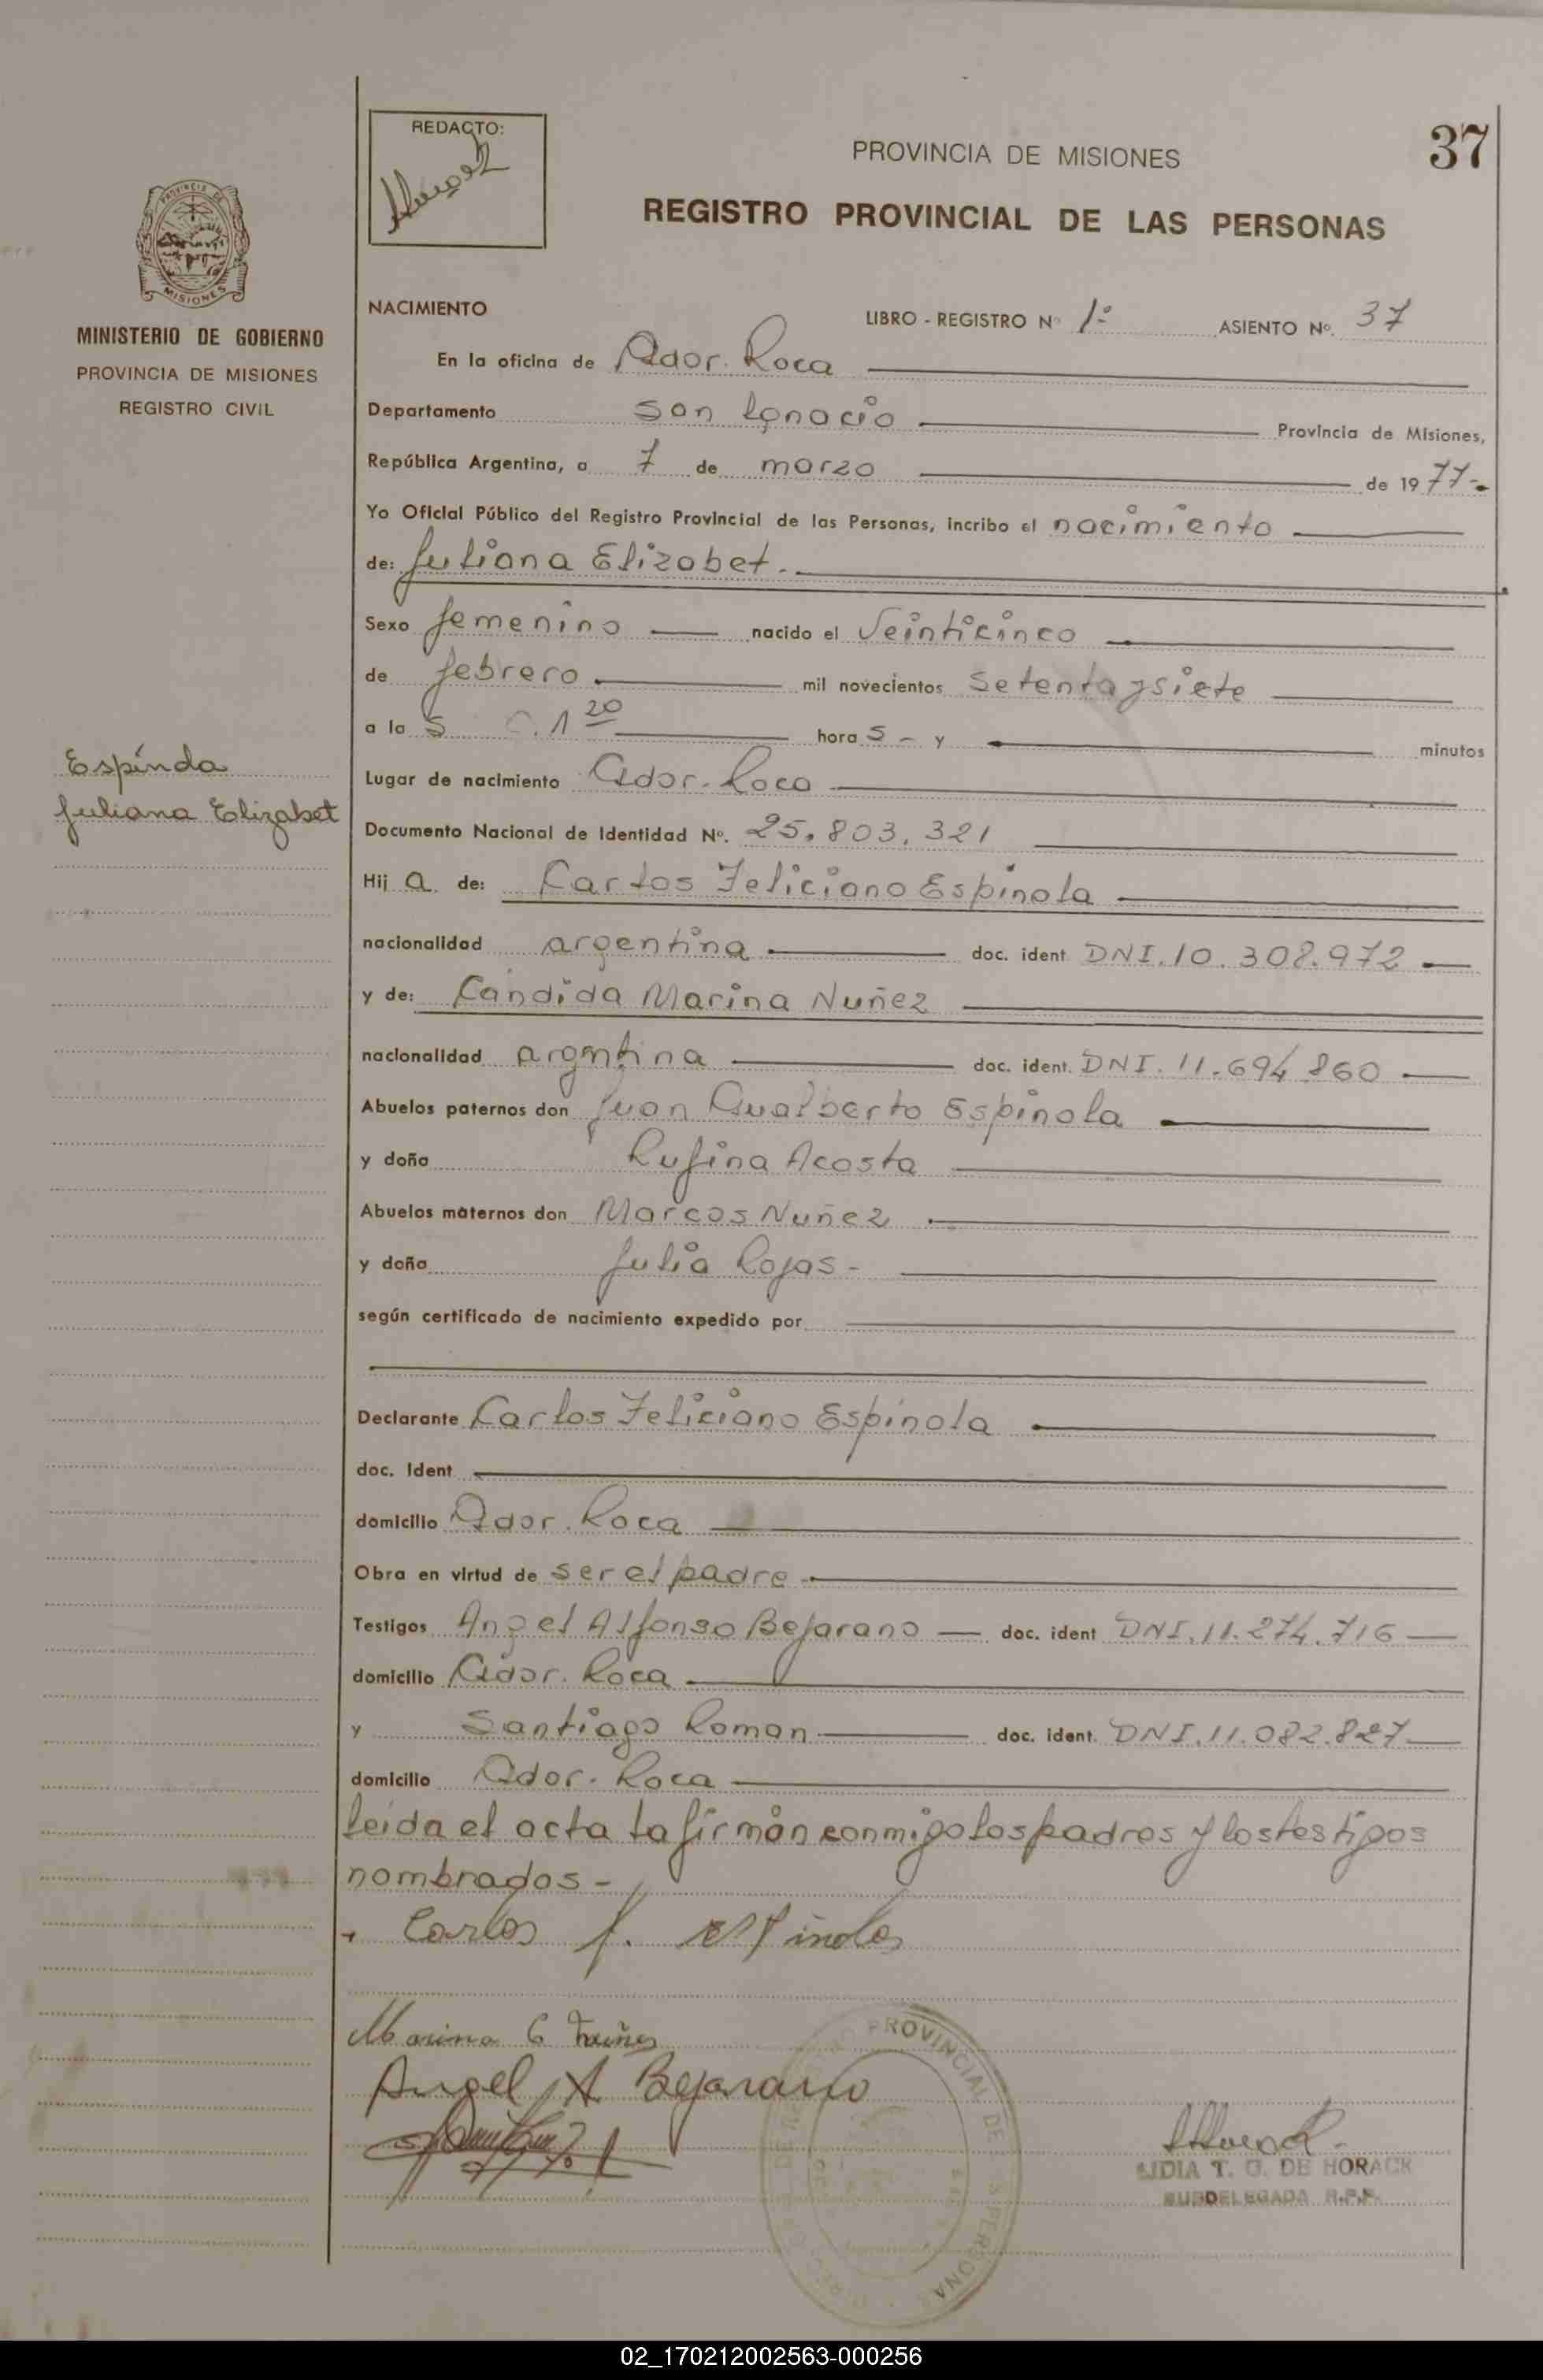 REDACTO:
PROVINCIA DE MISIONES
37
REGISTRO PROVINCIAL DE LAS PERSONAS
PROVINCIA DE
MISIONES
MINISTERIO DE GOBIERNO
PROVINCIA DE MISIONES
REGISTRO CIVIL
NACIMIENTO LIBRO - REGISTRO Nº 1º ASIENTO Nº. 37
En la oficina de Ador. Roca
Departamento San Ignacio Provincia de Misiones,
República Argentina, a 7 de marzo de 1977-
Yo Oficial Público del Registro Provincial de las Personas, incribo el nacimiento
de: Juliana Elizabet.
Sexo femenino nacido el Veinticinco
de febrero mil novecientos Setenta y siete
a la s 0.1 20 hora s - y minutos
Espínda
Juliana Elizabet
Lugar de nacimiento Ador. Roca
Documento Nacional de Identidad Nº. 25.803.321
Hij a de: Carlos Feliciano Espinola
nacionalidad argentina doc. ident DNI.10.308.972
y de: Candida Marina Nuñez
nacionalidad argntina doc. ident. DNI.11.694.860
Abuelos paternos don Juan Gualberto Espinola
y doña Rufina Acosta
Abuelos maternos don Marcos Nuñez
y doña Julia Rojas-
según certificado de nacimiento expedido por
Declarante Carlos Feliciano Espinola
doc. Ident
domicilio Ador. Roca
Obra en virtud de ser el padre
Testigos Angel Alfonso Bejarano doc. ident DNI.11.274.716
domicilio Ador. Roca
y Santiago Roman doc. ident. DNI.11.082.827
domicilio Ador. Roca
leida el acta la firman conmigo los padres y los testigos
nombrados-
Carlos f. espinola
Marina C Nuñez
Angel A Bejarano
PROVINCIAL DE
LIDIA T. G. DE HORACK
SUBDELEGADA R.P.P.
02_170212002563-000256